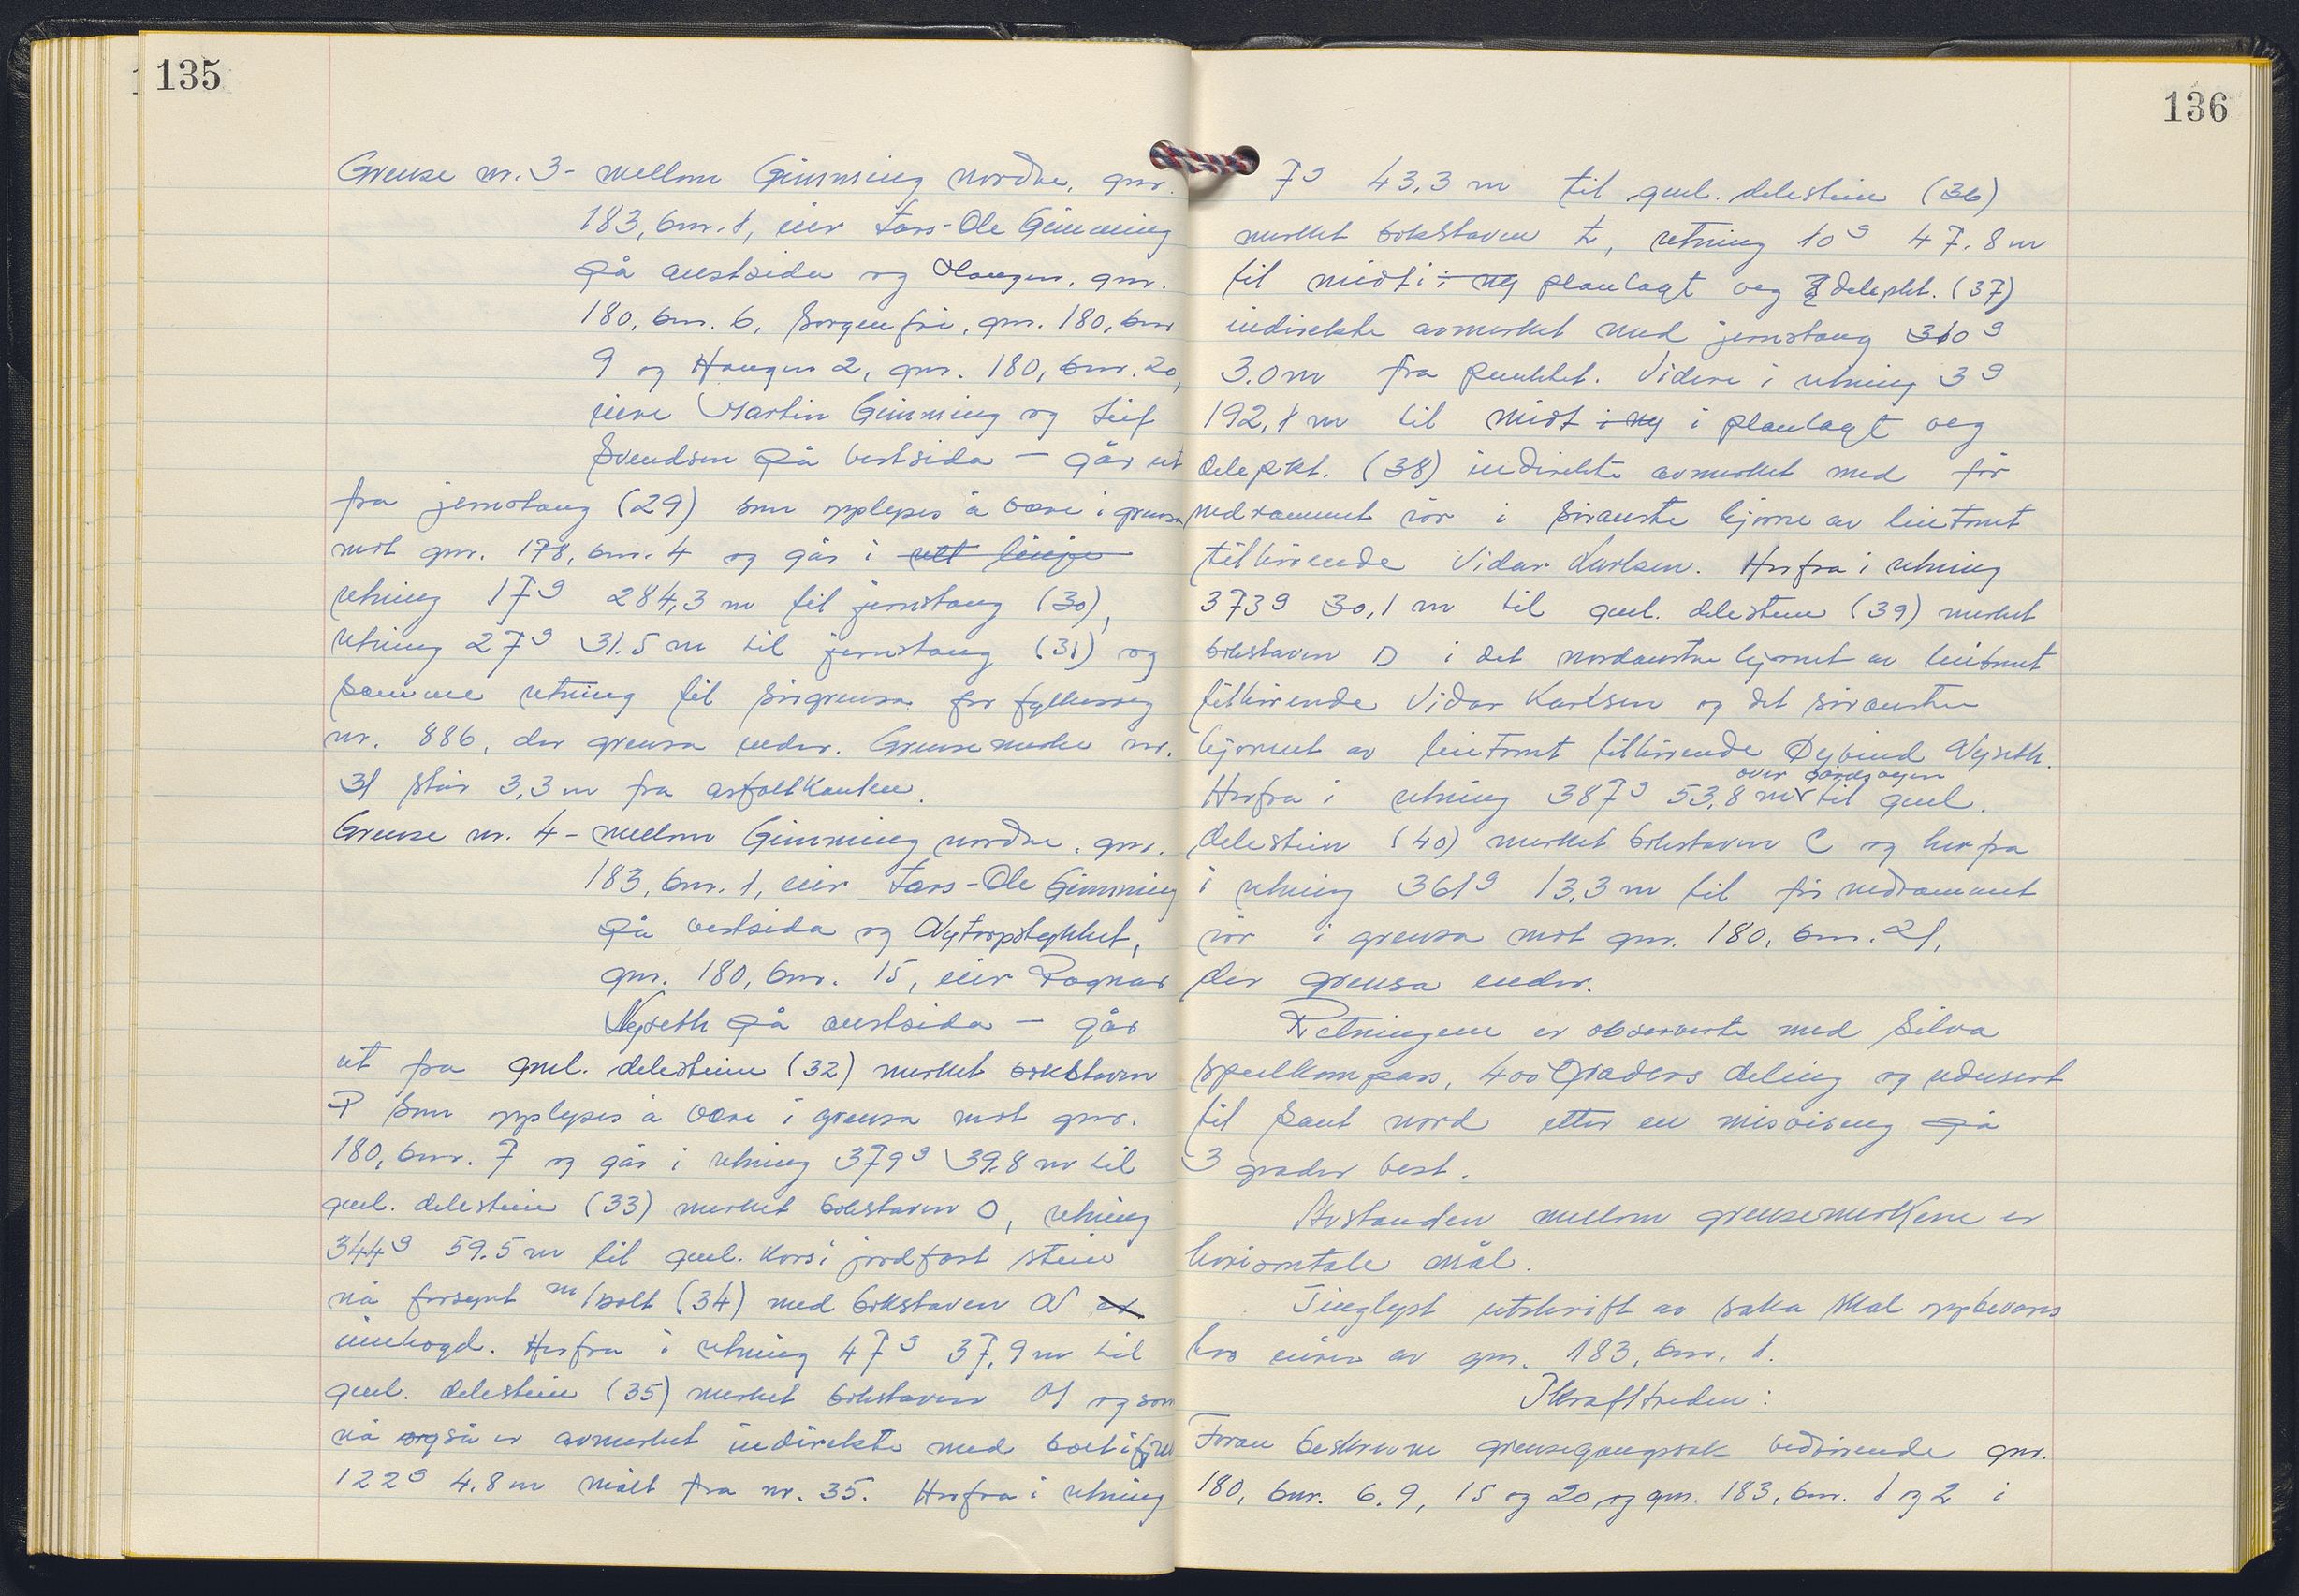 135
Grense nr. 3 - mellom Gimming nordre, gnr.
183, bnr. 1, eier Lars-Ole Gimming
på austsida og Haugen, gnr.
180, bnr. 6, Sorgenfri, gnr. 180, bnr
9 og Haugen 2, gnr. 180, bnr. 20,
eiere Martin Gimming og Leif
Svendsen på vestsida - går ut
fra jernstang (29) som opplyses å være i grensa
mot gnr. 178, bnr. 4 og går i rett linje
retning 17g 284,3 m til jernstang (30),
retning 27g 31.5 m til jernstang (31) og
samme retning til sørgrensa for fylkesveg
nr. 886, der grensa ender. Grensemerke nr.
31 står 3,3 m fra asfaltkanten.
Grense nr. 4 - mellom Gimming nordre, gnr.
183, bnr. 1, eier Lars-Ole Gimming
på vestsida og Nytorpstykket,
gnr. 180, bnr. 15, eier Ragnar
Nyseth på austsida - går
ut fra gml. delestein (32) merket bokstaven
P som opplyses å være i grensa mot gnr.
180, bnr. 7 og går i retning 379g 39.8 m til
gml. delestein (33) merket bokstaven O, retning
344g 59.5 m til gml. kors i jordfast stein
nå forsynt m/bolt (34) med bokstaven N er
innhogd. Herfra i retning 47g 37,9 m til
gml. delestein (35) merket bokstaven M og som
nå også er avmerket indirekte med bolt i fjell
122g 4.8 m målt fra nr. 35. Herfra i retning
136
7g 43,3 m til gml. delestein (36)
merket bokstaven L, retning 10g 47.8 m
til midt i ny planlagt veg delepkt. (37)
indirekte avmerket med jernstang 310g
3.0 m fra punktet. Videre i retning 3g
192,1 m til midt i ny i planlagt veg
delepkt. (38) indirekte avmerket med før
nedrammet rør i søraustre hjørne av leietomt
tilhørende Vidar Karlsen. Herfra i retning
373g 30,1 m til gml. delestein (39) merket
bokstaven D i det nordaustre hjørnet av leietomt
tilhørende Vidar Karlsen og det søraustre
hjørnet av leietomt tilhørende Øyvind Nyseth.
over gårdsvegen
Herfra i retning 387g 53,8 m til gml.
delestein (40) merket bokstaven C og herfra
i retning 361g 13,3 m til før nedrammet
rør i grensa mot gnr. 180, bnr. 21,
der grensa ender.
Retningene er observerte med Silva
speilkompass, 400 graders deling og redusert
til sant nord etter en misvisning på
3 grader vest.
Avstanden mellom grensemerkene er
horisontale mål.
Tinglyst utskrift av saka skal oppbevares
hos eieren av gnr. 183, bnr. 1.
Ikrafttreden:
Foran beskrevne grensegangssak vedrørende gnr.
180, bnr. 6, 9, 15 og 20 og gnr. 183, bnr. 1 og 2 i